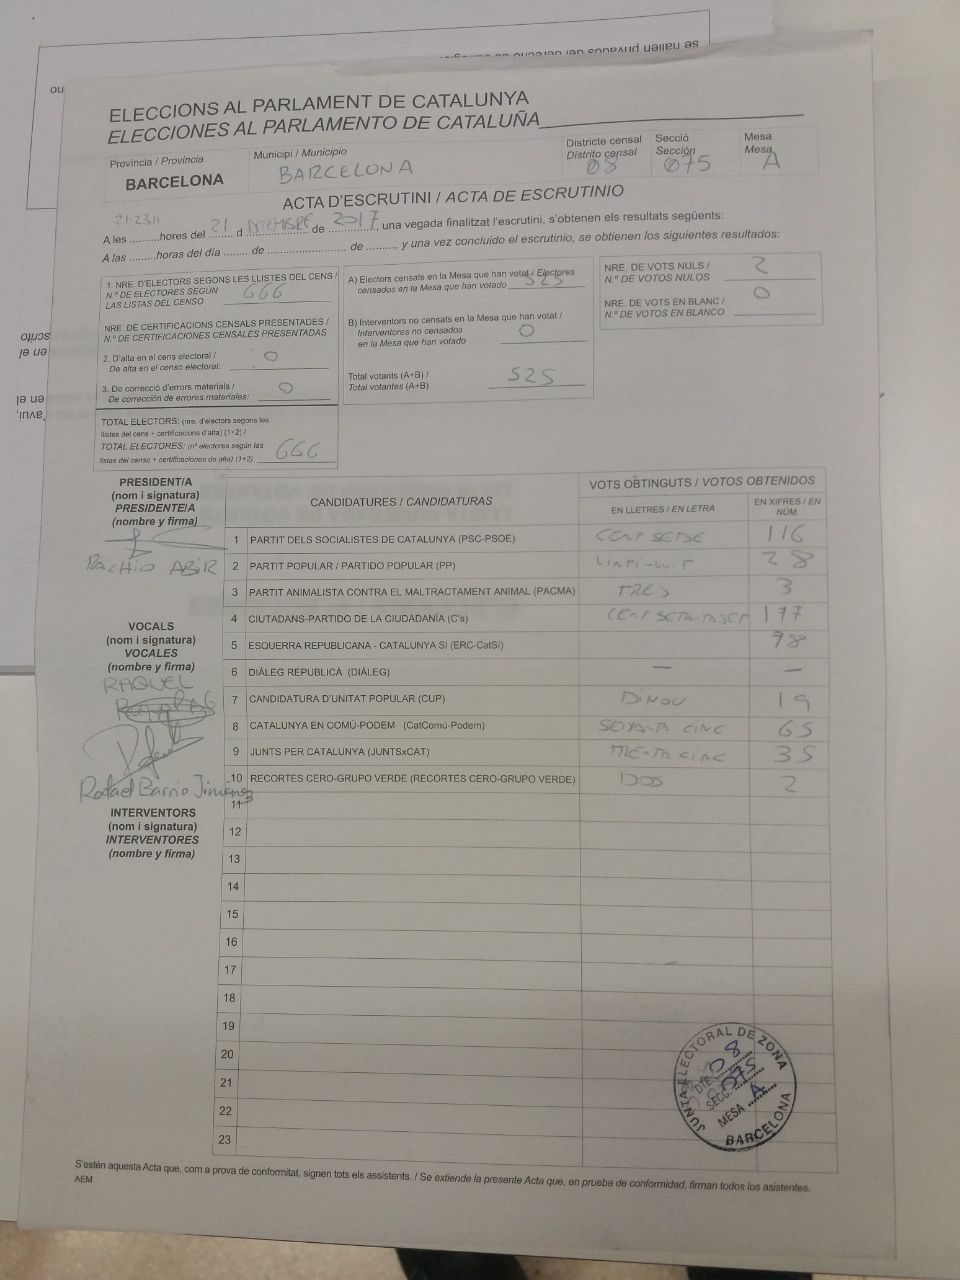 se hallen privados del derecho de sufragio
ELECCIONS AL PARLAMENT DE CATALUNYA
ELECCIONES AL PARLAMENTO DE CATALUÑA
Província / Provincia
BARCELONA
Municipi / Municipio
BARCELONA
Districte censal
Distrito censal
08
Secció
Sección
075
Mesa
Mesa
A
ACTA D'ESCRUTINI / ACTA DE ESCRUTINIO
A les 21:23h hores del 21 d DECEMBRE de 2017, una vegada finalitzat l'escrutini, s'obtenen els resultats següents:
A las ..........horas del día ........ de ........................ de .........., y una vez concluido el escrutinio, se obtienen los siguientes resultados:
1. NRE. D'ELECTORS SEGONS LES LLISTES DEL CENS /
N.º DE ELECTORES SEGÚN
LAS LISTAS DEL CENSO 666
NRE. DE CERTIFICACIONS CENSALS PRESENTADES /
N.º DE CERTIFICACIONES CENSALES PRESENTADAS
2. D'alta en el cens electoral /
De alta en el censo electoral: 0
3. De correcció d'errors materials /
De corrección de errores materiales: 0
TOTAL ELECTORS: (nre. d'electors segons les
llistes del cens + certificacions d'alta) (1+2) /
TOTAL ELECTORES: (nº electores según las
listas del censo + certificaciones de alta) (1+2) 666
A) Electors censats en la Mesa que han votat / Electores
censados en la Mesa que han votado 525
B) Interventors no censats en la Mesa que han votat /
Interventores no censados
en la Mesa que han votado 0
Total votants (A+B) /
Total votantes (A+B) 525
NRE. DE VOTS NULS /
N.º DE VOTOS NULOS 2
NRE. DE VOTS EN BLANC /
N.º DE VOTOS EN BLANCO 0
PRESIDENT/A
(nom i signatura)
PRESIDENTE/A
(nombre y firma)
RACHID ABIR
VOCALS
(nom i signatura)
VOCALES
(nombre y firma)
RAQUEL
Rafael Barrio Jiménez
INTERVENTORS
(nom i signatura)
INTERVENTORES
(nombre y firma)
CANDIDATURES / CANDIDATURAS
VOTS OBTINGUTS / VOTOS OBTENIDOS
EN LLETRES / EN LETRA
EN XIFRES / EN NÚM.
1 PARTIT DELS SOCIALISTES DE CATALUNYA (PSC-PSOE) CENT SETSE 116
2 PARTIT POPULAR / PARTIDO POPULAR (PP) VINTI-UUIT 28
3 PARTIT ANIMALISTA CONTRA EL MALTRACTAMENT ANIMAL (PACMA) TRES 3
4 CIUTADANS-PARTIDO DE LA CIUDADANÍA (C's) CENT SETANTASET 177
5 ESQUERRA REPUBLICANA - CATALUNYA SI (ERC-CatSí) 78
6 DIÀLEG REPUBLICÀ (DIÀLEG) — —
7 CANDIDATURA D'UNITAT POPULAR (CUP) DINOU 19
8 CATALUNYA EN COMÚ-PODEM (CatComú-Podem) SEIXANTA CINC 65
9 JUNTS PER CATALUNYA (JUNTSxCAT) TRENTA CINC 35
10 RECORTES CERO-GRUPO VERDE (RECORTES CERO-GRUPO VERDE) DOS 2
11
12
13
14
15
16
17
18
19
20
21
22
23
JUNTA ELECTORAL DE ZONA
DTE. 08
SECC. 075
MESA A
BARCELONA
S'estén aquesta Acta que, com a prova de conformitat, signen tots els assistents. / Se extiende la presente Acta que, en prueba de conformidad, firman todos los asistentes.
AEM